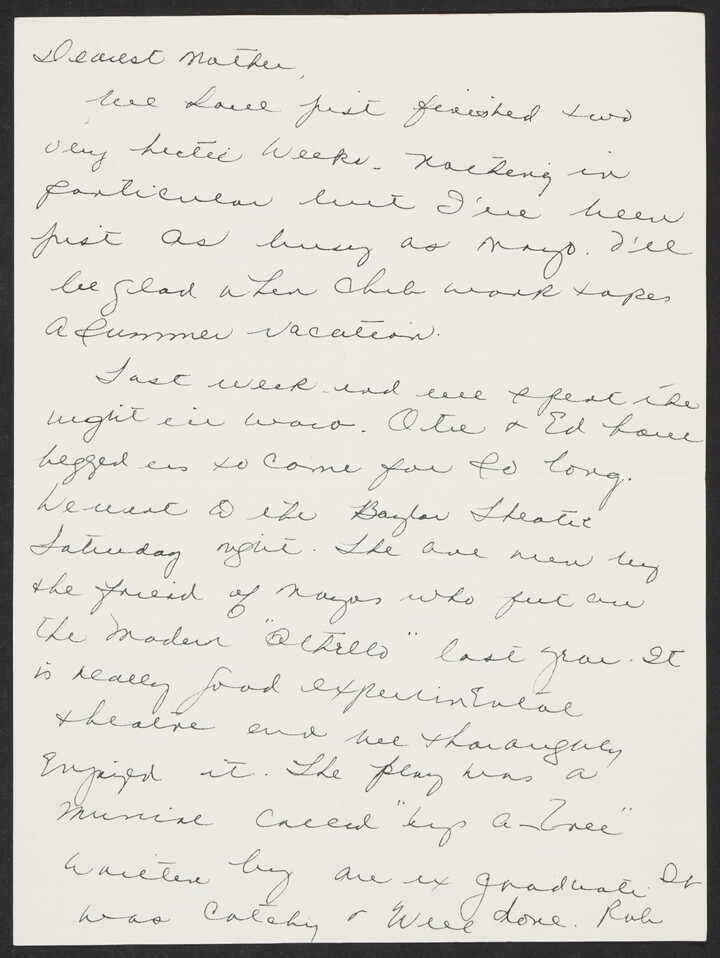 Dearest Mother,
We have just finished two
very hectic weeks. Nothing in
particular but I've been
just as busy as Mayo. I'll
be glad when club work takes
a summer vacation.
Last week-end we spent the
night in Waco. Otie & Ed have
begged us to come for so long.
We went to the Baylor Theatre
Saturday night. The one run by
the friend of Mayos who put on
the modern "Othello" last year. It
is really good experimental
theatre and we thoroughly
enjoyed it. The play was a
musical called "Up a Tree"
written by an ex graduate. It
was catchy & well done. Rob